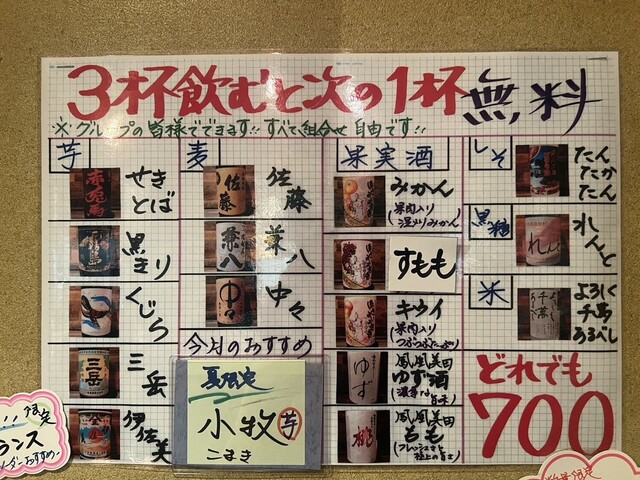 3杯飲むと次の1杯無料
※グループの皆様でできます!! すべて組合せ自由です!!
芋
せきとば
黒きり
くじら
三岳
伊佐美
麦
佐藤
兼八
中々
今月のおすすめ
夏限定
小牧 芋
こまき
果実酒
みかん
(果肉入り
すもも
キウイ
(果肉入り
つぶつぶたっぷり)
鳳凰美田
ゆず酒
(濃厚な旨味)
鳳凰美田
もも
しそ
たん
たか
たん
黒糖
れんと
米
よろしく
千萬
あるべし
どれでも
700